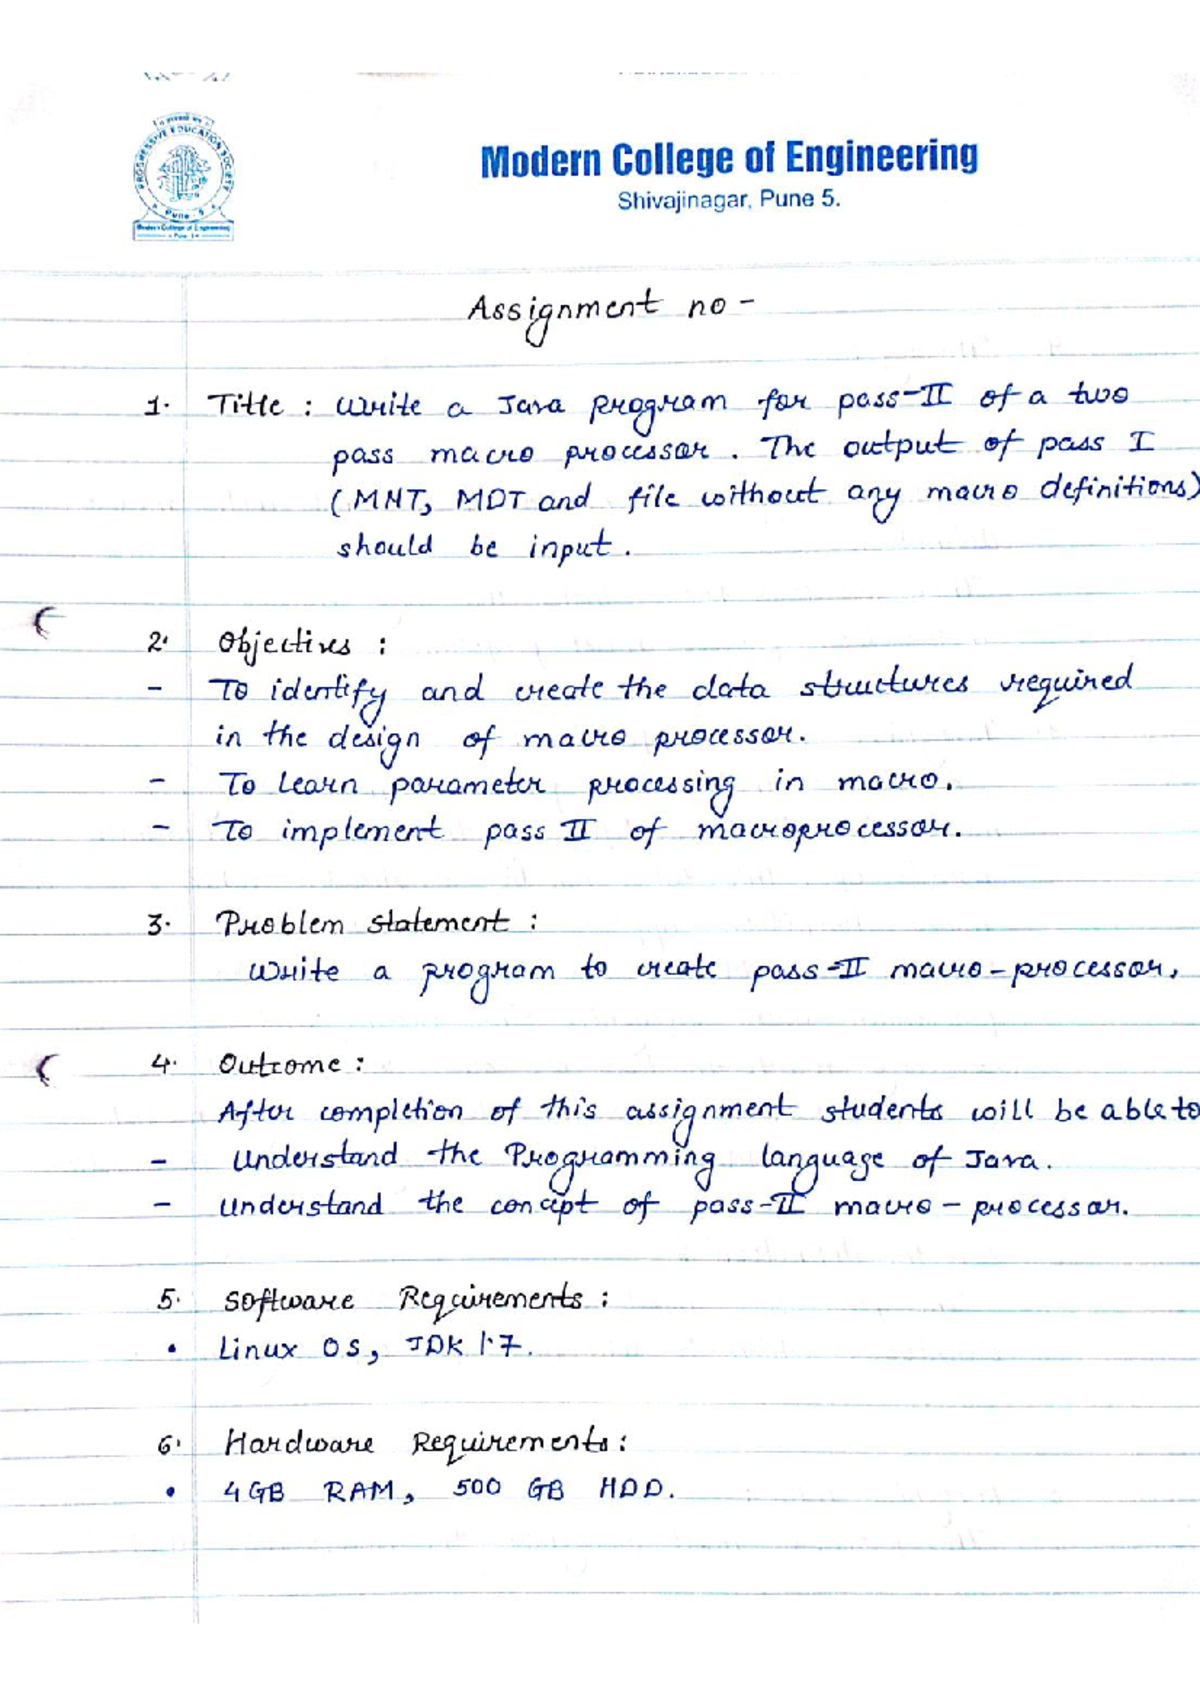 PROGRESSIVE EDUCATION SOCIETY
Pune - 5
Modern College of Engineering
Modern College of Engineering
Shivajinagar, Pune 5.
Assignment no -
1. Title : Write a Java program for pass-II of a two
pass macro processor. The output of pass I
(MNT, MDT and file without any macro definitions)
should be input.
2. Objectives :
- To identify and create the data structures required
in the design of macro processor.
- To learn parameter processing in macro.
- To implement pass II of macroprocessor.
3. Problem statement :
Write a program to create pass-II macro-processor.
4. Outcome :
After completion of this assignment students will be able to
- Understand the Programming language of Java.
- Understand the concept of pass-II macro - processor.
5. Software Requirements :
• Linux OS, JDK 1.7.
6. Hardware Requirements :
• 4GB RAM, 500 GB HDD.